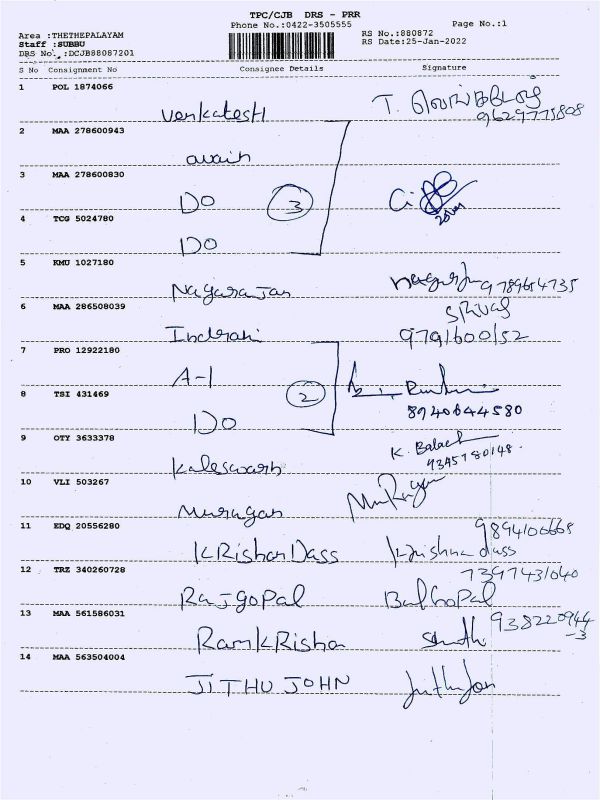 TPC/CJB DRS - PRR
Phone No.:0422-3505555
Page No.:1
Area :THETHEPALAYAM
RS No.:880872
Staff :SUBBU
RS Date:25-Jan-2022
DRS No. :DCJB88087201
S No Consignment No Consignee Details Signature
1 POL 1874066
Venkatesh T.
9629775808
2 MAA 278600943
3 MAA 278600830
DO 3
4 TCG 5024780
DO
5 KMU 1027180
Nagarajan 9789654735
6 MAA 286508039
Indrani 9791600152
7 PRO 12922180
A-1
8 TSI 431469
2
8940644580
DO
9 OTY 3633378
K. Balach
9345780148
Kaleswarn
10 VLI 503267
Murugan Murugan
11 EDQ 20556280
9894106668
KRishanDass Krishna dass
12 TRZ 340260728
7397431040
RajGopal BalGopal
13 MAA 561586031
938220944
-3
RamKRisha
14 MAA 563504004
JITHU JOHN